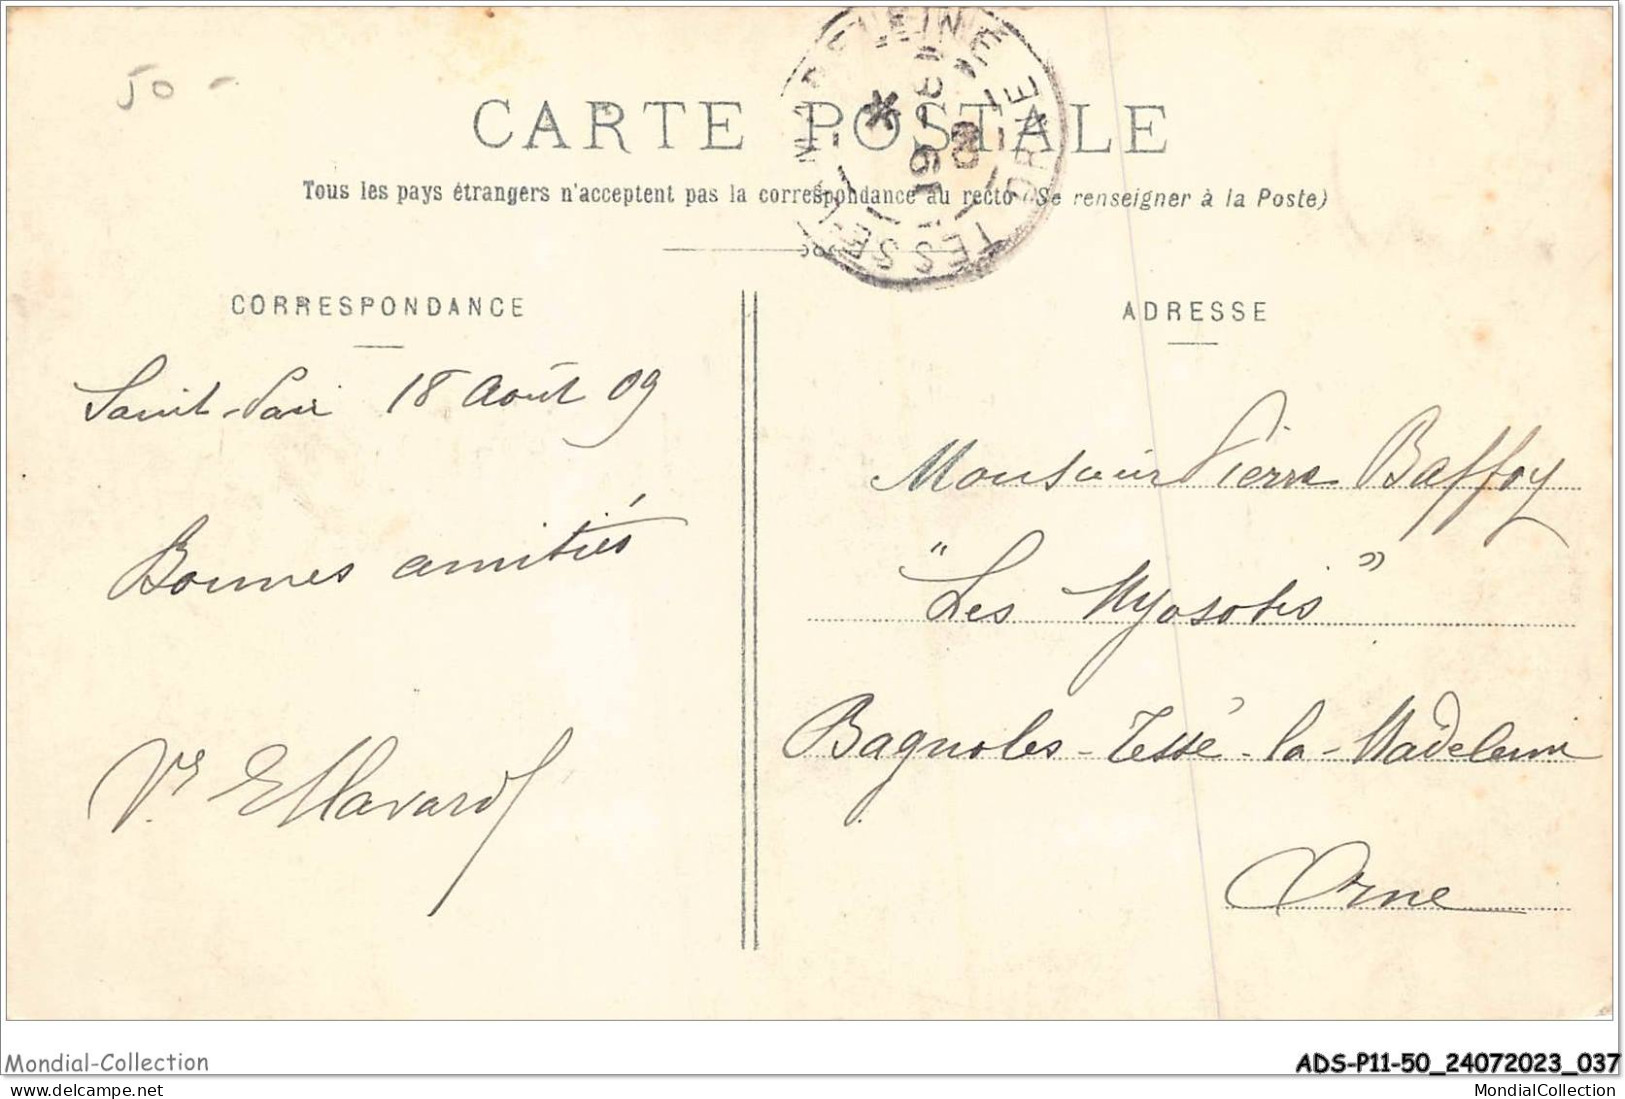 50 -
CARTE POSTALE
Tous les pays étrangers n'acceptent pas la correspondance au recto (Se renseigner à la Poste)
TESSÉ-LA-MADELEINE ORNE
19-8
09
CORRESPONDANCE
Saint-Pair 18 Août 09
Bonnes amitiés
ADRESSE
Monsieur Pierre Baffoy
"Les Myosotis"
Bagnoles-Tessé-la-Madeleine
Orne
Mondial-Collection
ADS-P11-50_24072023_037
www.delcampe.net
MondialCollection